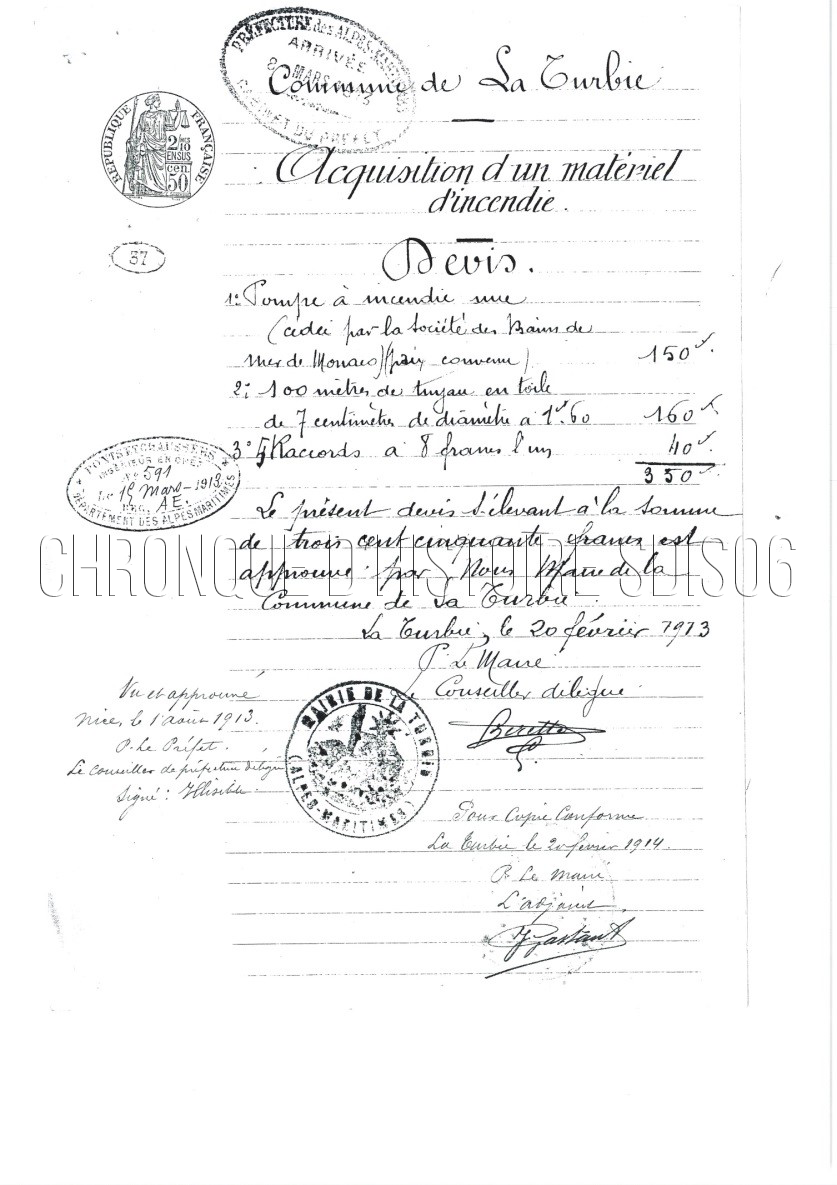 PRÉFECTURE des ALPES-MARITIMES
ARRIVÉE
MARS
CABINET DU PRÉFET
Commune de La Turbie
RÉPUBLIQUE FRANÇAISE
2/10
EN SUS
50 cen.
Acquisition d'un matériel
d'incendie.
37
Devis.
1° Pompe à incendie nue
(cédée par la Société des Bains de
Mer de Monaco) (prix convenu) 150f.
2° 100 mètres de tuyau en toile
de 7 centimètres de diamètre à 1f60 160f
3° 5 Raccords à 8 francs l'un 40f.
350f.
PONTS ET CHAUSSÉES
INGÉNIEUR EN CHEF
No 591
Le 15 Mars 1913
REG. AE.
DÉPARTEMENT DES ALPES-MARITIMES
Le présent devis s'élevant à la somme
de trois cent cinquante francs est
approuvé par Nous Maire de la
Commune de La Turbie.
CHRONIQUE D'HISTOIRE SDIS06
La Turbie, le 20 février 1913
P. Le Maire
Le Conseiller délégué
Vu et approuvé
Nice, le 1 août 1913.
P. Le Préfet.
Le Conseiller de préfecture délégué
Signé : Illisible.
MAIRIE DE LA TURBIE
(ALPES-MARITIMES)
Pour Copie Conforme
La Turbie le 20 février 1914.
P. Le Maire
L'adjoint